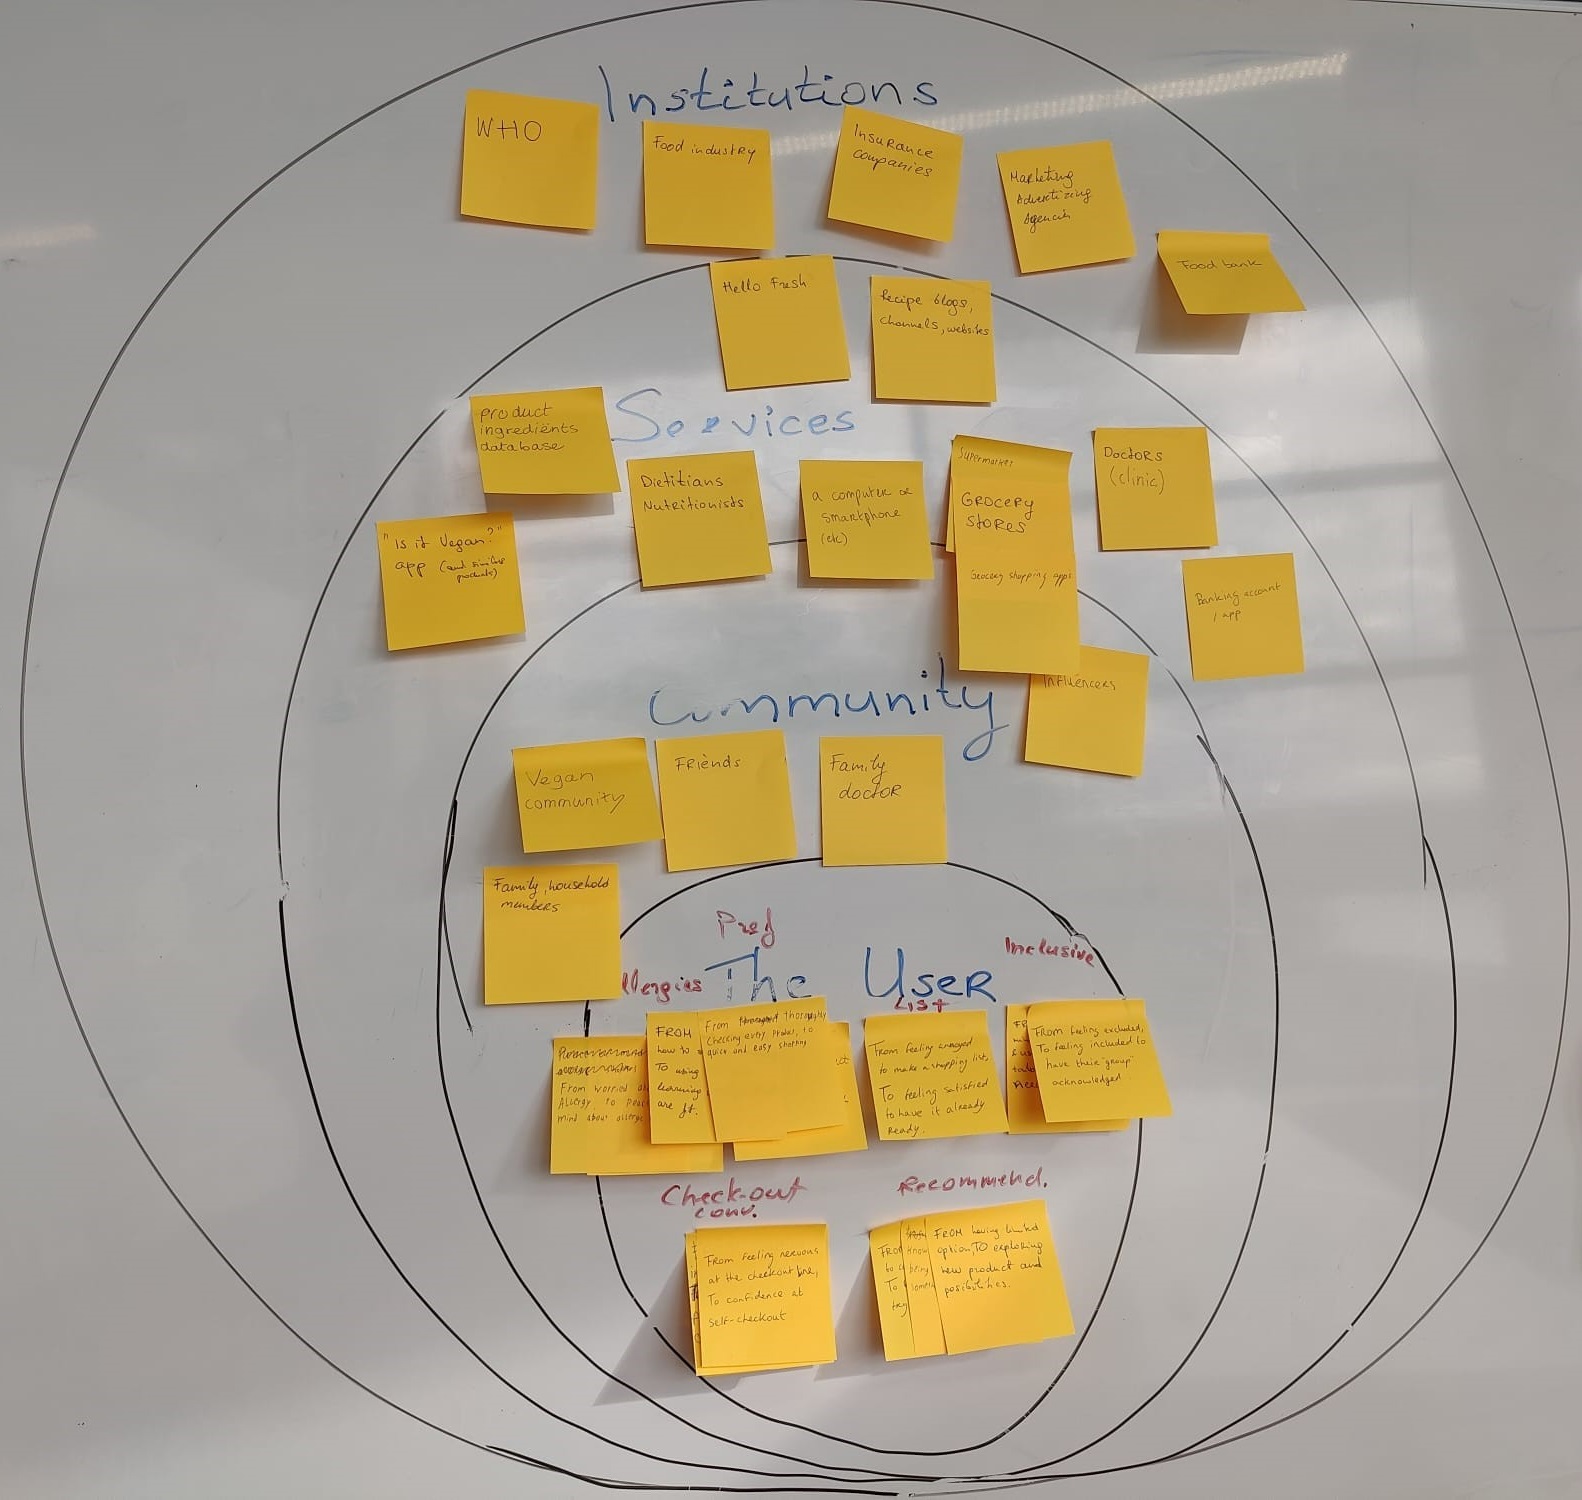 Institutions
WHO
Food industry
Insurance
companies
Marketing
Advertizing
Agencies
Food bank
Hello Fresh
Recipe blogs,
channels, websites
Services
product
ingrediënts
database
Dietitians
Nutritionists
a computer or
smartphone
(etc)
Supermarket
Grocery
stores
Grocery shopping apps
Doctors
(clinic)
"Is it Vegan?"
app (and similar
products)
Banking account
/ app
Community
Influencers
Vegan
community
Friends
Family
doctor
Family, household
members
Pref
Inclusive
llergies
The User
List
From worried
Allergy, to
mind about
FROM
how to
To using
learning
are ft.
From thoroughly
checking every
quick and easy shopping
From feeling annoyed
to make a shopping list,
To feeling satisfied
to have it already
ready.
From feeling excluded,
To feeling included to
have their 'group'
acknowledged
Check-out
conv.
Recommend.
From feeling nervous
at the checkout line,
To confidence at
self-checkout
FROM having limited
option TO exploring
new product and
posibilities.